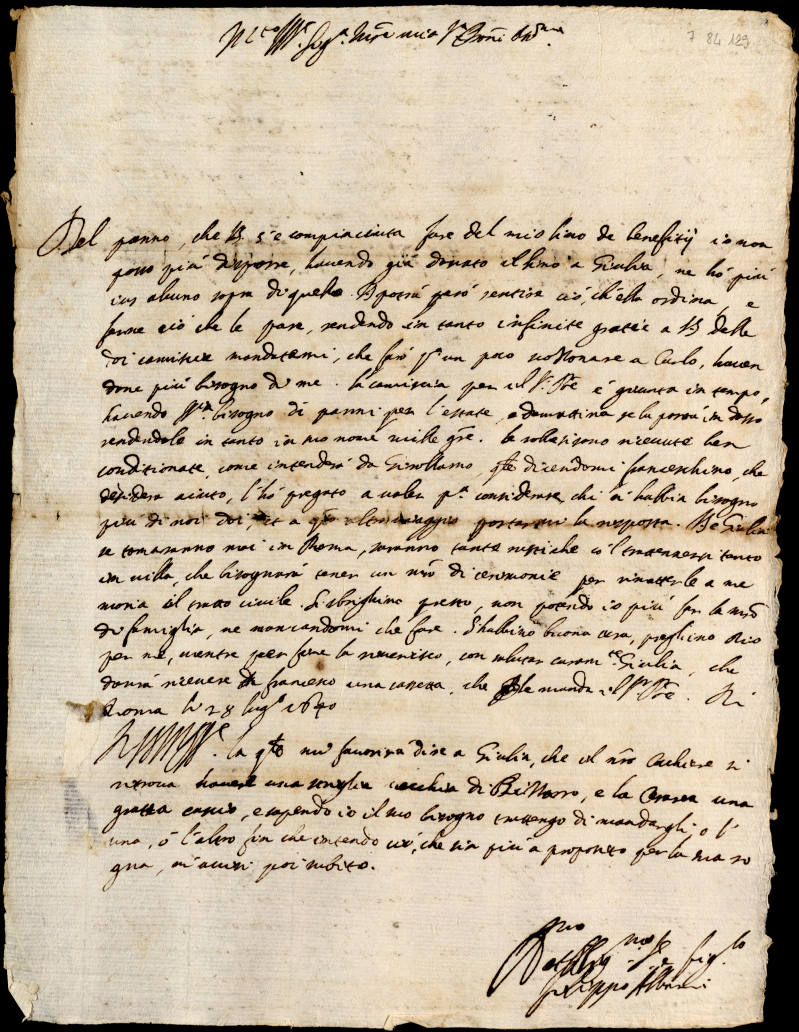 7 84 129
Sig.ra mia
Del panno, che V.S. s'è compiaciuta fare del mio lino de benefitij io non
posso più disporre, havendo già donato il lino a Giulia, ne hò più
ius alcuno sopra di quello. potrà però sentire ciò, ch'ella ordina, e
farne ciò che le pare, rendendo in tanto infinite gratie a V.S. delle
doi camiscie mandatemi, che farò un poco a Carlo, haven
done più bisogno di me. la camiscia per il S.r P̃re è giunta in tempo,
havendo bisogno di panni per l'estate, e domattina se la porrà in dosso
rendendole in tanto in suo nome mille gr̃e. le sono ricevute ben
conditionate, come intenderà da Girollamo, q̃le dicendomi franceschino, che
desidera aiuto, l'hò pregato a voler p.a considerare, chi n'habbia bisogno
più di noi doi, et a q̃sto altro viaggio portarmi la risposta. Giulia
se tornaranno mai in Roma, saranno tanto rustiche co'l trattenersi tanto
in villa, che bisognarà tener un m̃ro di ceremonie per rimetterle a me
moria il tratto civile. Si sbrighino presto, non potendo io più far la m̃ra
di famiglia, ne mancandomi che fare. S'habbino buona cura, preghino Dio
per me, mentre per fine la riverisco, con salutar caram.te Giulia, che
dovrà ricevere da francesco una cassetta, che le manda il S.r P̃re. Di
Roma li 28 lug.o 1640
V.S. la q̃le mi favorirà dire a Giulia, che il ñro Cochiere si
ritrova havere una vecchia di, e la una
gratta cascio, e sapendo io il suo bisogno trattengo di mandargli o l'
una, ò l'altro fin che intendo ciò, che sia più a proposito per la ma so
gna, m'avisi poi subito.
fig.lo
Filippo Albani